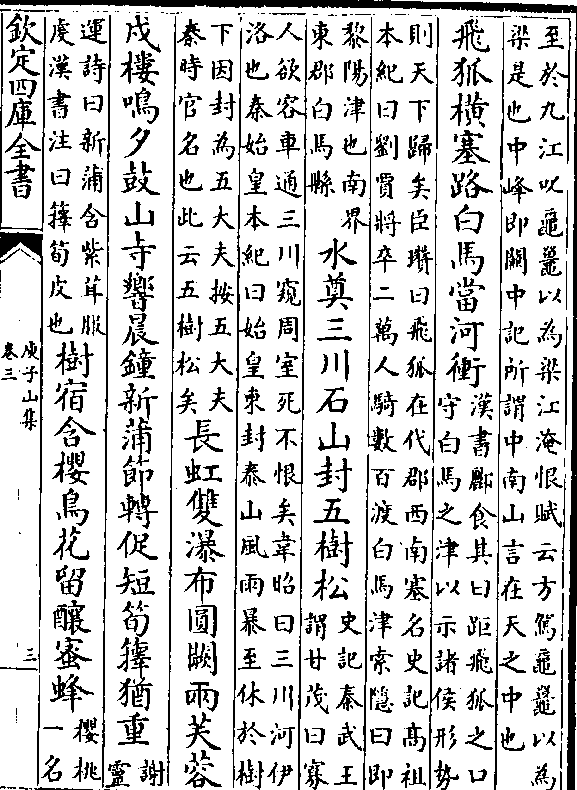 至於九江以黿鼉以為梁江淹恨賦云方駕黿鼉以為
梁是也中峰即關中記所謂中南山言在天之中也
飛狐橫塞路白馬當河衝
漢書酈食其曰距飛狐之口
守白馬之津以示諸侯形勢
則天下歸矣臣瓚曰飛狐在代郡西南塞名史記髙祖
本紀曰劉賈將卒二萬人騎數百渡白馬津索隱曰即
黎陽津也南界
東郡白馬縣
水奠三川石山封五樹松
史記秦武王
謂甘茂曰寡
人欲容車通三川窺周室死不恨矣韋昭曰三川河伊
洛也秦始皇本紀曰始皇東封泰山風雨暴至休於樹
下因封為五大夫按五大夫
秦時官名也此云五樹松矣
長虹雙瀑布圓闕兩芙蓉
戍樓鳴夕鼓山寺響晨鐘新蒲節轉促短筍籜猶重
謝
靈
運詩曰新蒲含紫茸服
虔漢書注曰籜筍皮也
樹宿含櫻鳥花留釀蜜蜂
櫻桃
一名
欽定四庫全書
庾子山集
卷三
三